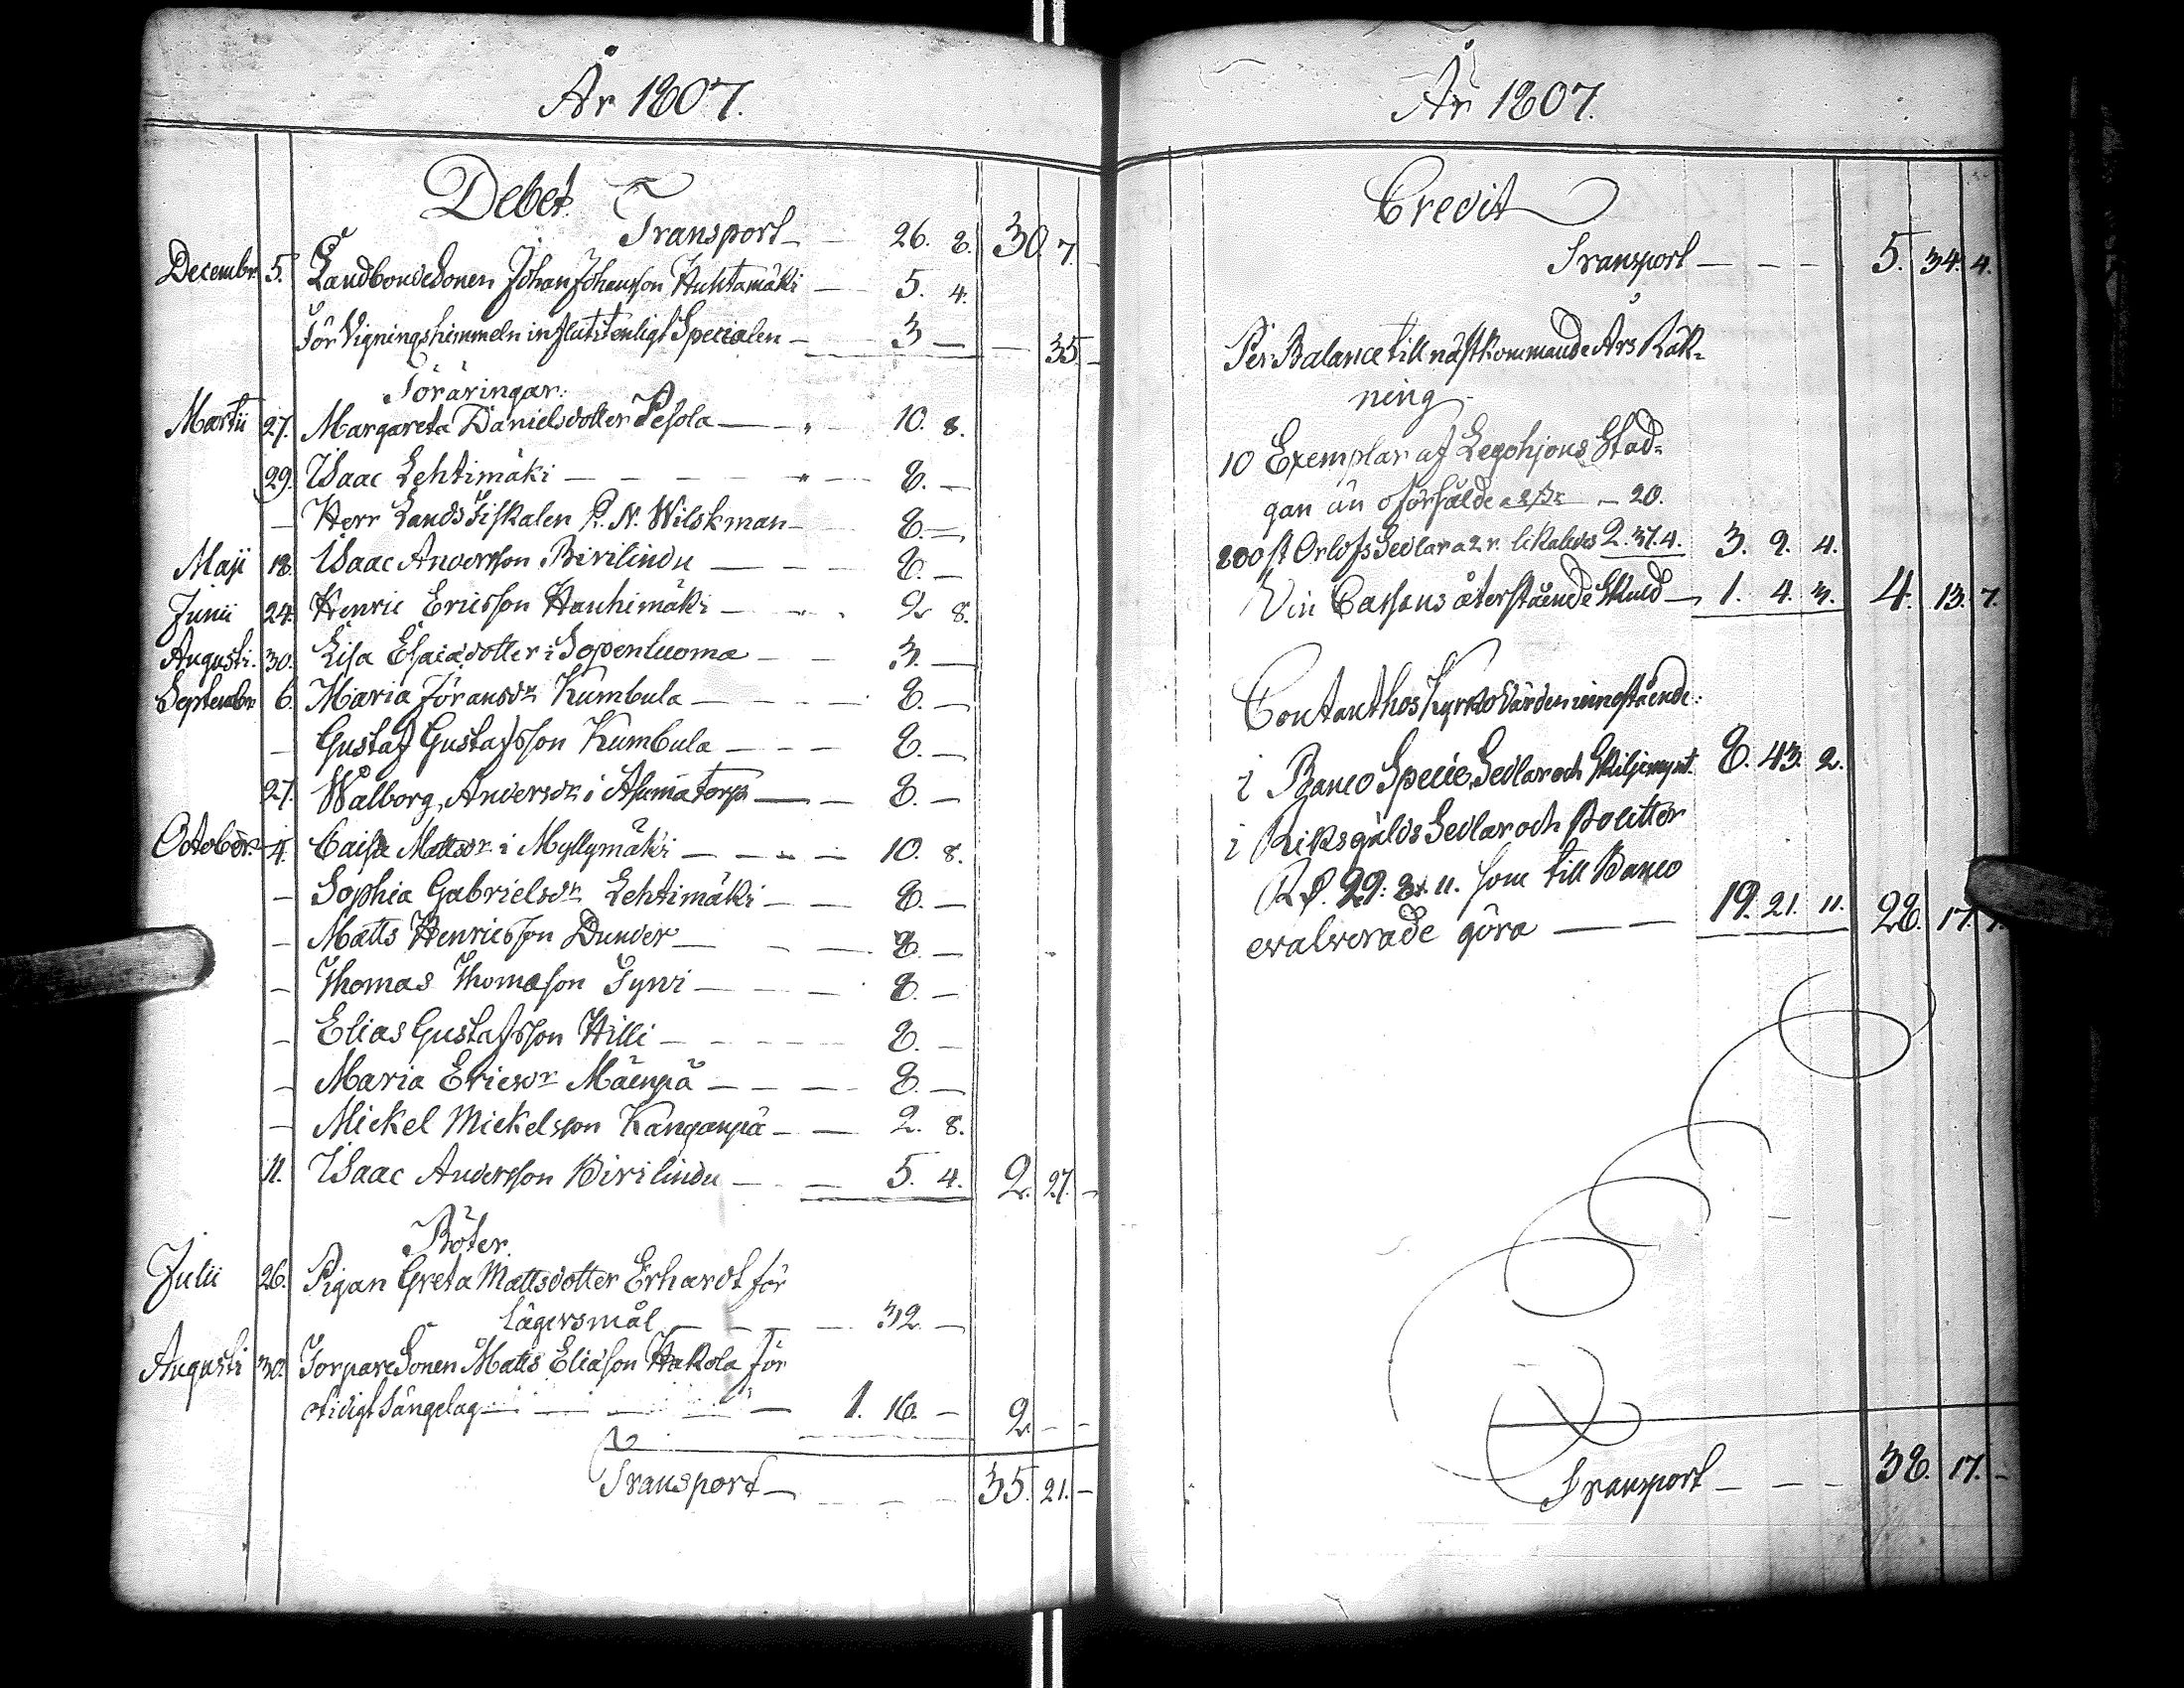 År 1807.
Debet.
Transport — 26. 8. 30. 7. —
Decembr. 5. LandbondeSonen Johan Johansson Huhtamäki — 5. 4.
För Vigningshimmeln influtit enligt Specialen — 3 — — 35 —
Föräringar:
Martii 27. Margareta Danielsdotter Pesola — 10. 8.
29. Isaac Lehtimäki — 8. —
— Herr LandsFiskalen P. N. Wilskman — 8. —
Maji 18. Isaac Andersson Birilindu — 8. —
Junii 24. Henric Ericsson Hauhimäki — 2 8.
Augusti. 30. Lisa Esaiædotter i Sopentuoma — 3. —
Septembr 6. Maria Göransdr Kumbula — 8. —
— Gustaf Gustafsson Kumbula — 8. —
27. Walborg Andersdr i torp — 8. —
October. 4. Caisa Mattsdr i Myllymäki — 10. 8.
— Sophia Gabrielsdr Lehtimäki — 8. —
— Matts Henricsson Dunder — 8. —
— Thomas Thomason Syvi — 8. —
— Elias Gustafsson Hilli — 8. —
— Maria Ericsdr Mäenpä — 8. —
— Mickel Mickelsson Kanganpä — 2. 8.
11. Isaac Andersson Birilindu — 5. 4. 2. 27. —
Böter.
Julii 26. Pigan Greta Mattsdotter Erhardt för
lägersmål — 32 —
Augusti 30. TorpareSonen Matts Eliason Hakola för
otidigt Sängelag — 1. 16. — 2 — —
Transport — 35. 21. —
År 1807.
Credit
Transport — — — 5. 34. 4.
Per Balance till nästkommande Års Räk-
ning
10 Exemplar af Legohjons Stad-
gan än oförsålde a 2 — 20.
800 st Orlofs Sedlar a 2 r. likaledes 2. 37. 4. 3. 9. 4.
Vin Cassans återstående Skuld — 1. 4. 3. 4. 13. 7.
Contant hos Kyrko Värden innestående:
i Banco Specie Sedlar och Skiljemynt. 8. 43. 2.
i Riksgälds Sedlar och Politter
Rd. 29. 11. som till Banco
evalverade göra — — 19. 21. 11. 28. 17. 1.
Transport — — — 38. 17. —